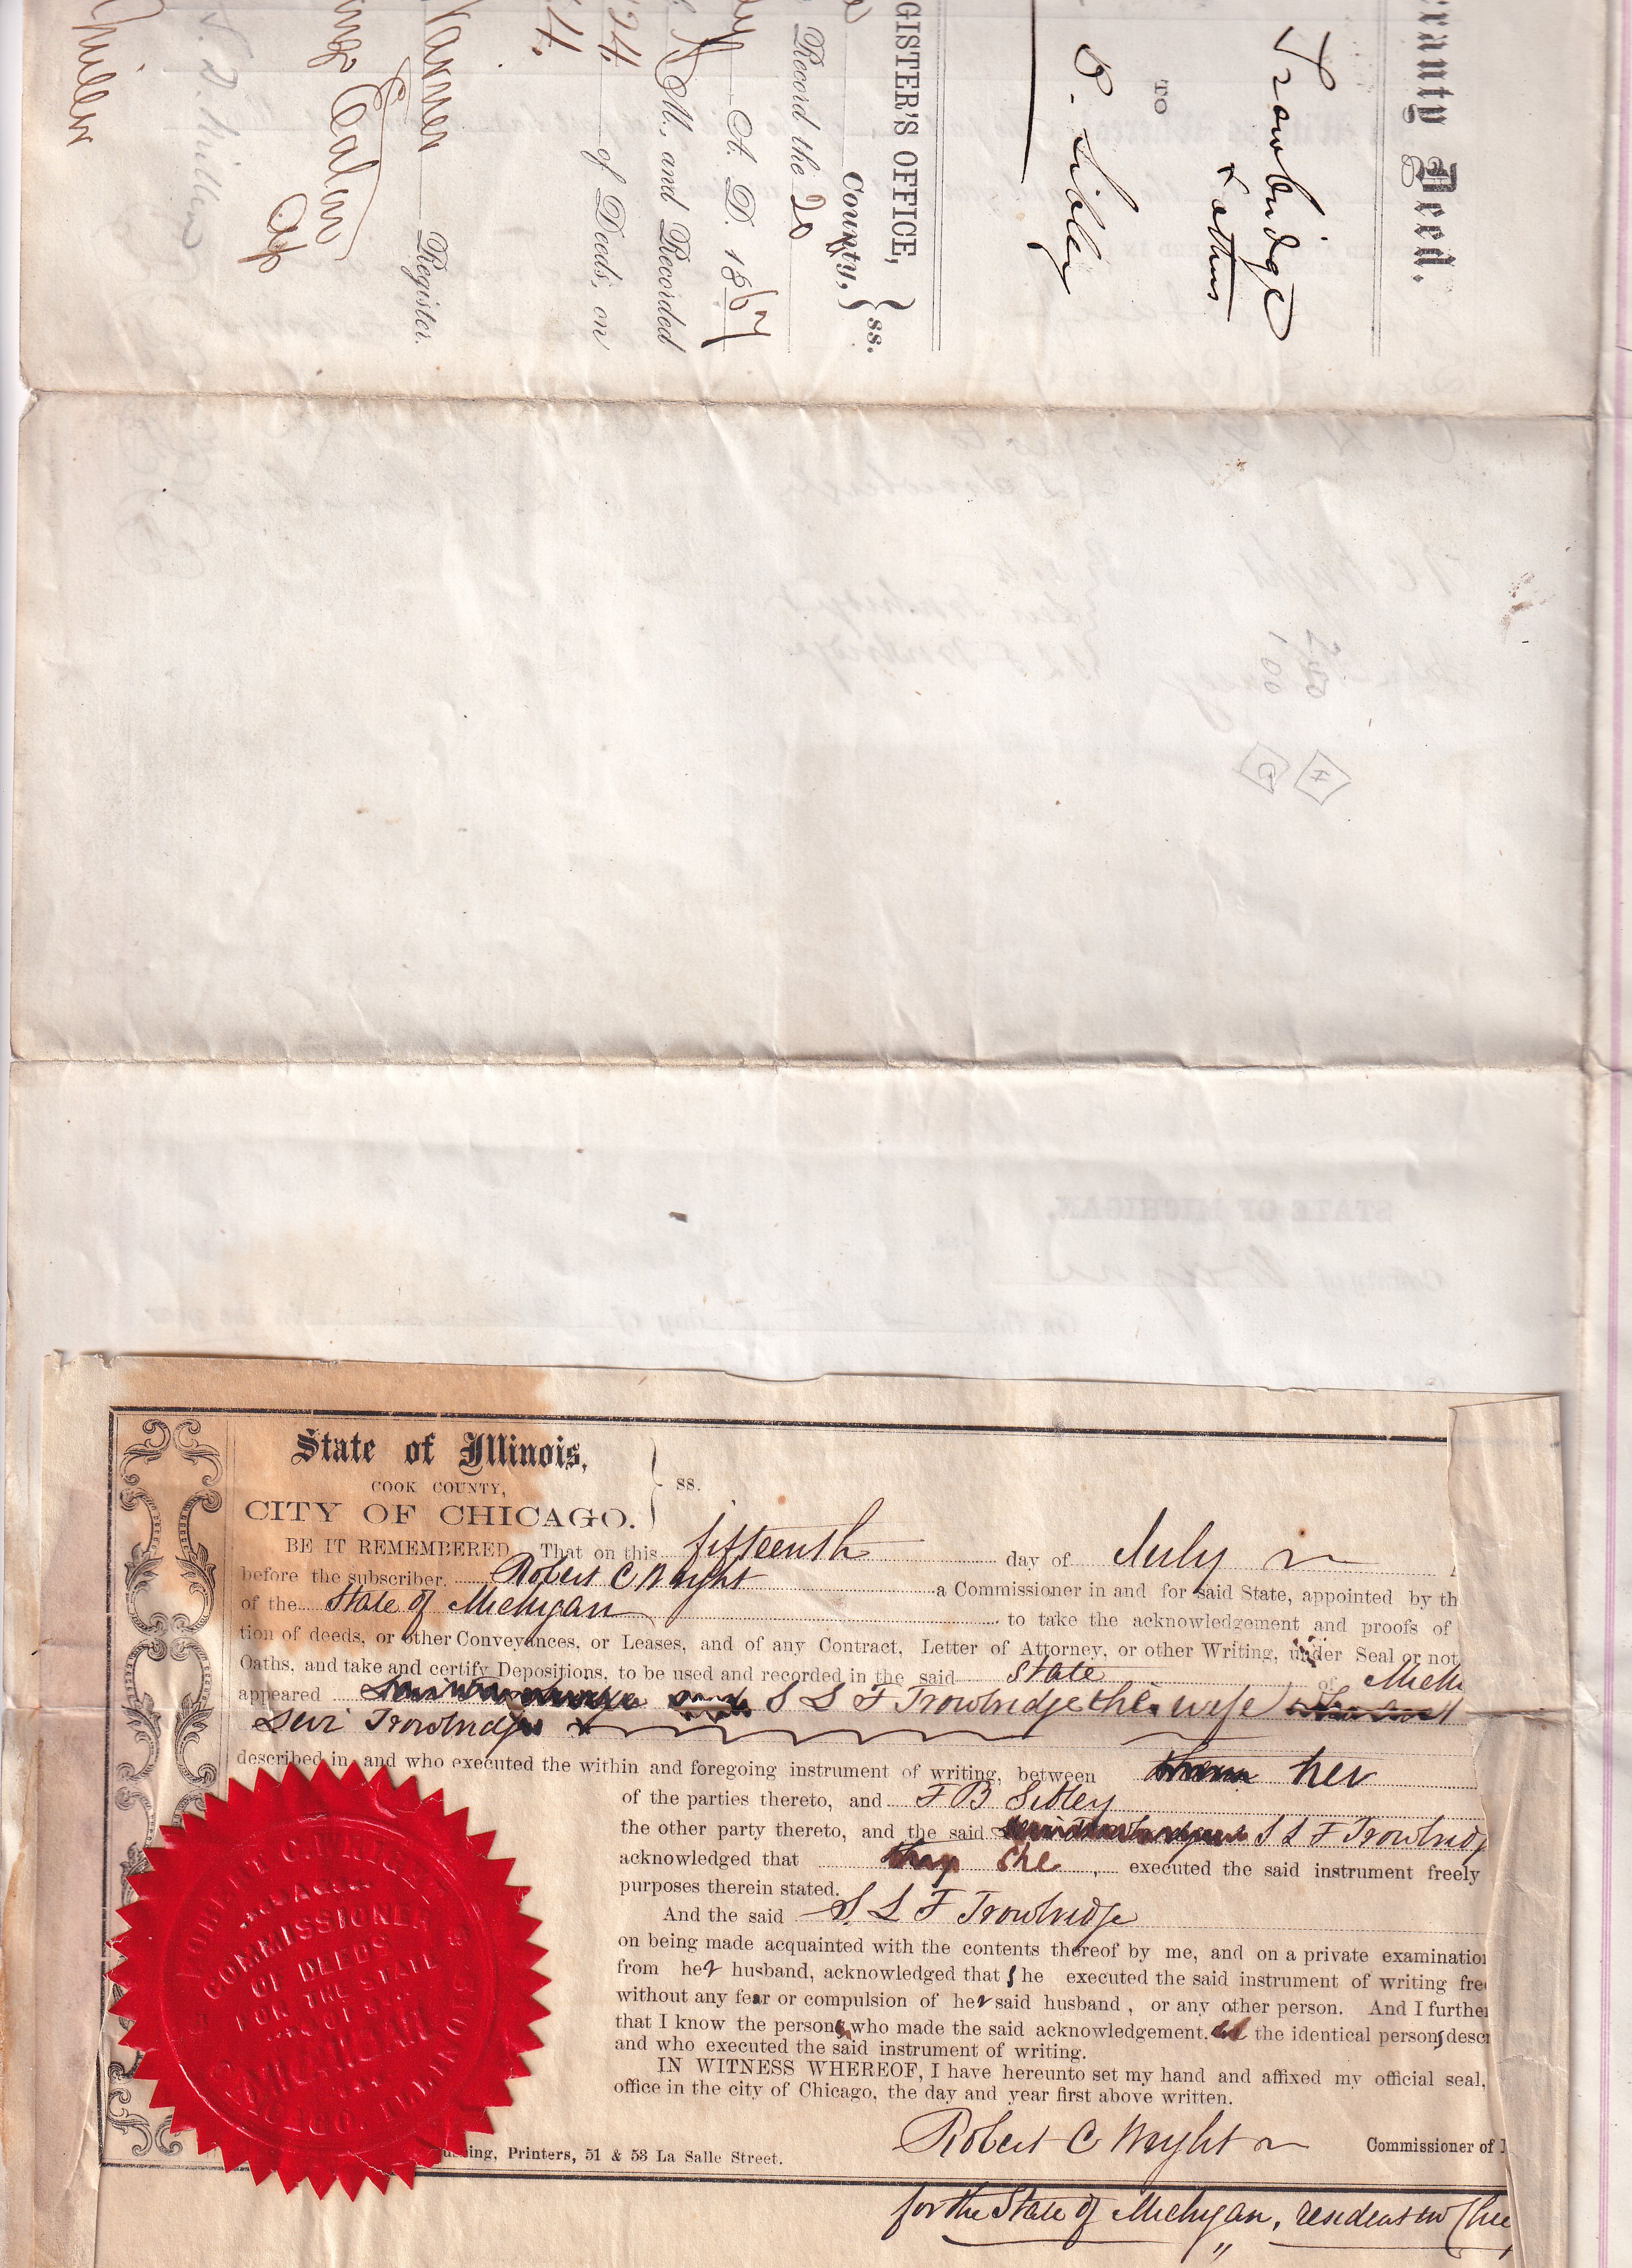 rranty Deed.
Trowbridge
& others
TO
B. Sibley
GISTER'S OFFICE,
County, } ss.
Record the 20
A. D. 1867
M., and Recorded
24 of Deeds, on
4.
Warner
Register.
Miller
State of Illinois,
COOK COUNTY, } ss.
CITY OF CHICAGO.
BE IT REMEMBERED, That on this fifteenth day of July
before the subscriber, Robert C Wright a Commissioner in and for said State, appointed by th
of the State of Michigan to take the acknowledgement and proofs of
tion of deeds, or other Conveyances, or Leases, and of any Contract, Letter of Attorney, or other Writing, under Seal or not
Oaths, and take and certify Depositions, to be used and recorded in the said State of Mich
appeared S L F Trowbridge the wife
Levi Trowbridge
described in, and who executed the within and foregoing instrument of writing, between her
of the parties thereto, and F B Sibley
the other party thereto, and the said S L F Trowbridg
acknowledged that she, executed the said instrument freely
purposes therein stated.
And the said S. L F Trowbridge
on being made acquainted with the contents thereof by me, and on a private examination
from her husband, acknowledged that she executed the said instrument of writing free
without any fear or compulsion of her said husband, or any other person. And I further
that I know the person who made the said acknowledgement, the identical person descr
and who executed the said instrument of writing.
IN WITNESS WHEREOF, I have hereunto set my hand and affixed my official seal,
office in the city of Chicago, the day and year first above written.
Robert C Wright Commissioner of
ing, Printers, 51 & 53 La Salle Street.
for the State of Michigan, resident in Chic
ROBERT C. WRIGHT
COMMISSIONER
OF DEEDS
FOR THE STATE
OF
MICHIGAN
CHICAGO, ILLINOIS